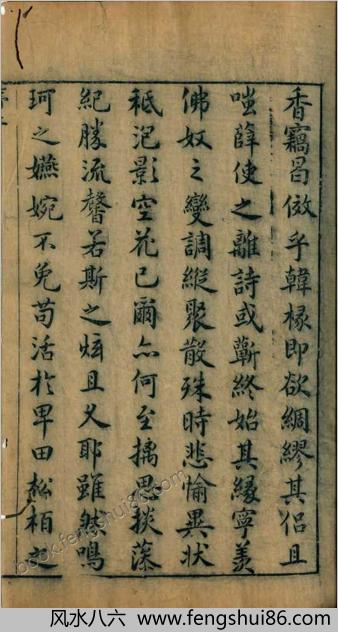 香竊曷倣乎韓椽即欲綢繆其侣且
嗤薛使之離詩或蘄終始其緣寧羡
佛奴之變調縱聚散殊時悲愉異狀
秪泡影空花已爾亦何至摛思掞藻
紀勝流馨若斯之炫且久耶雖然鳴
珂之嬿婉不免苟活於卑田松栢之
book.fengshui86.com
风水八六 www.fengshui86.com